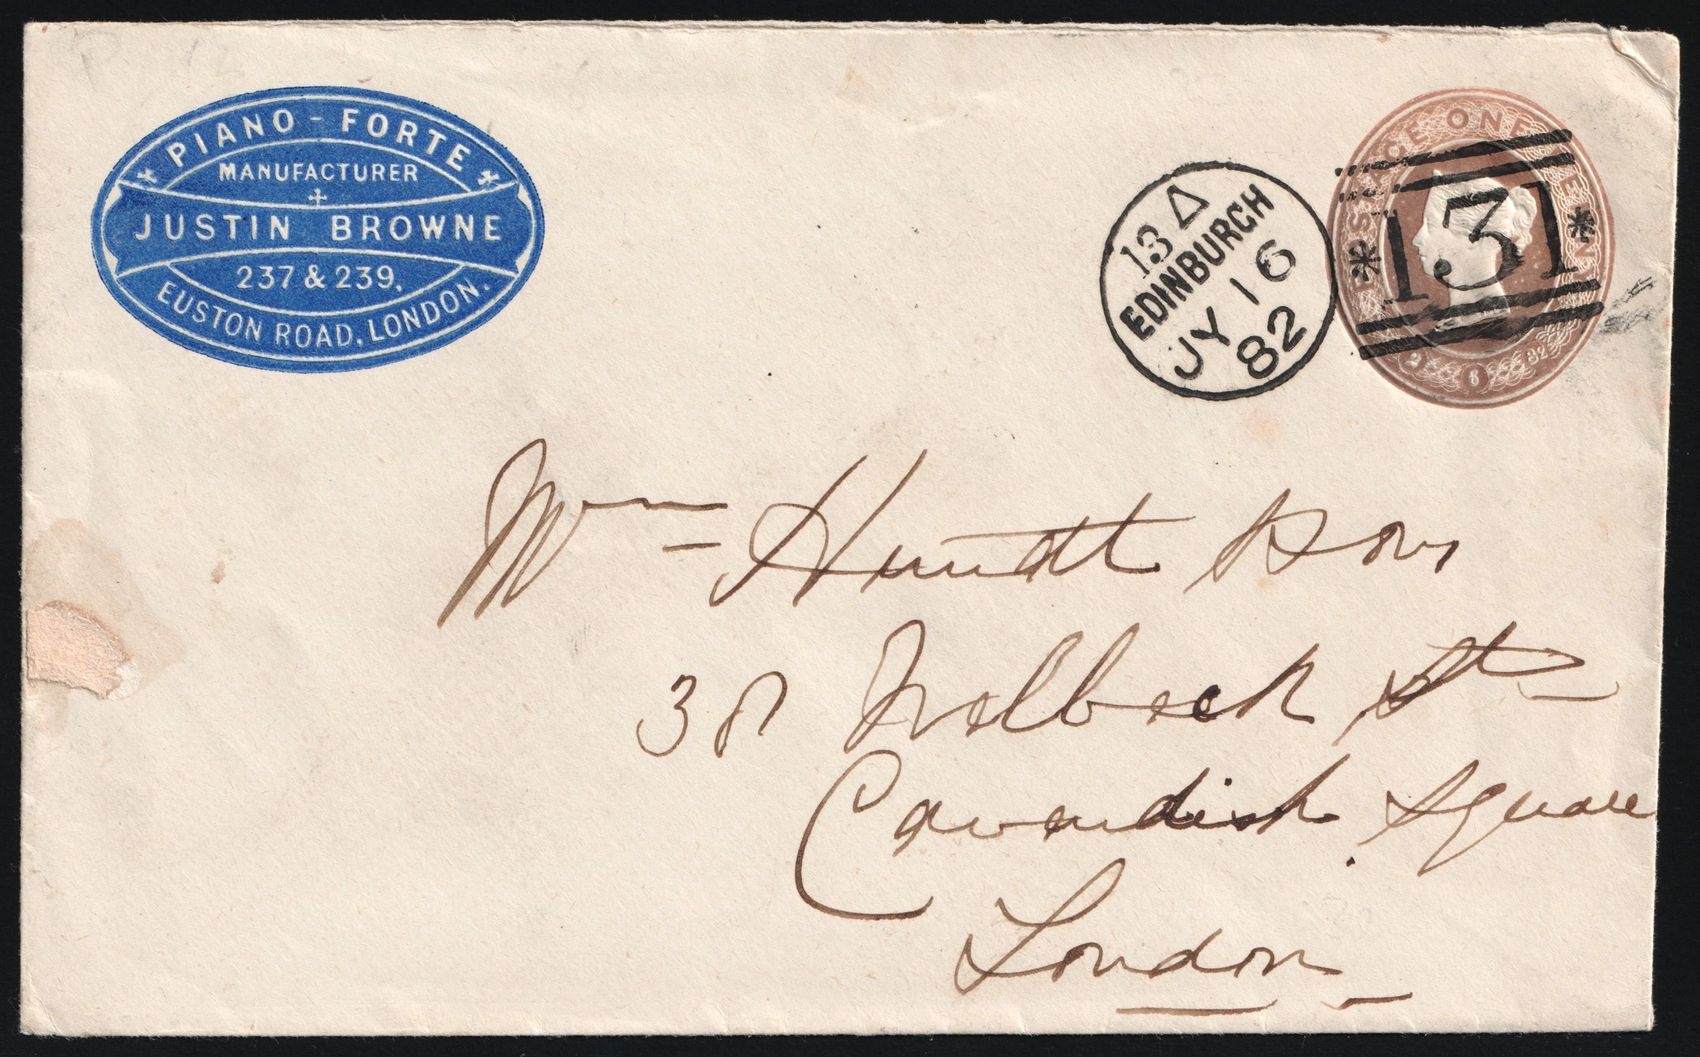 PIANO-FORTE
MANUFACTURER
JUSTIN BROWNE
237 & 239,
EUSTON ROAD, LONDON.
13 Δ
EDINBURGH
JY 16
82
131
ONE
82
Wm
Welbeck St
Cavendish Square
London